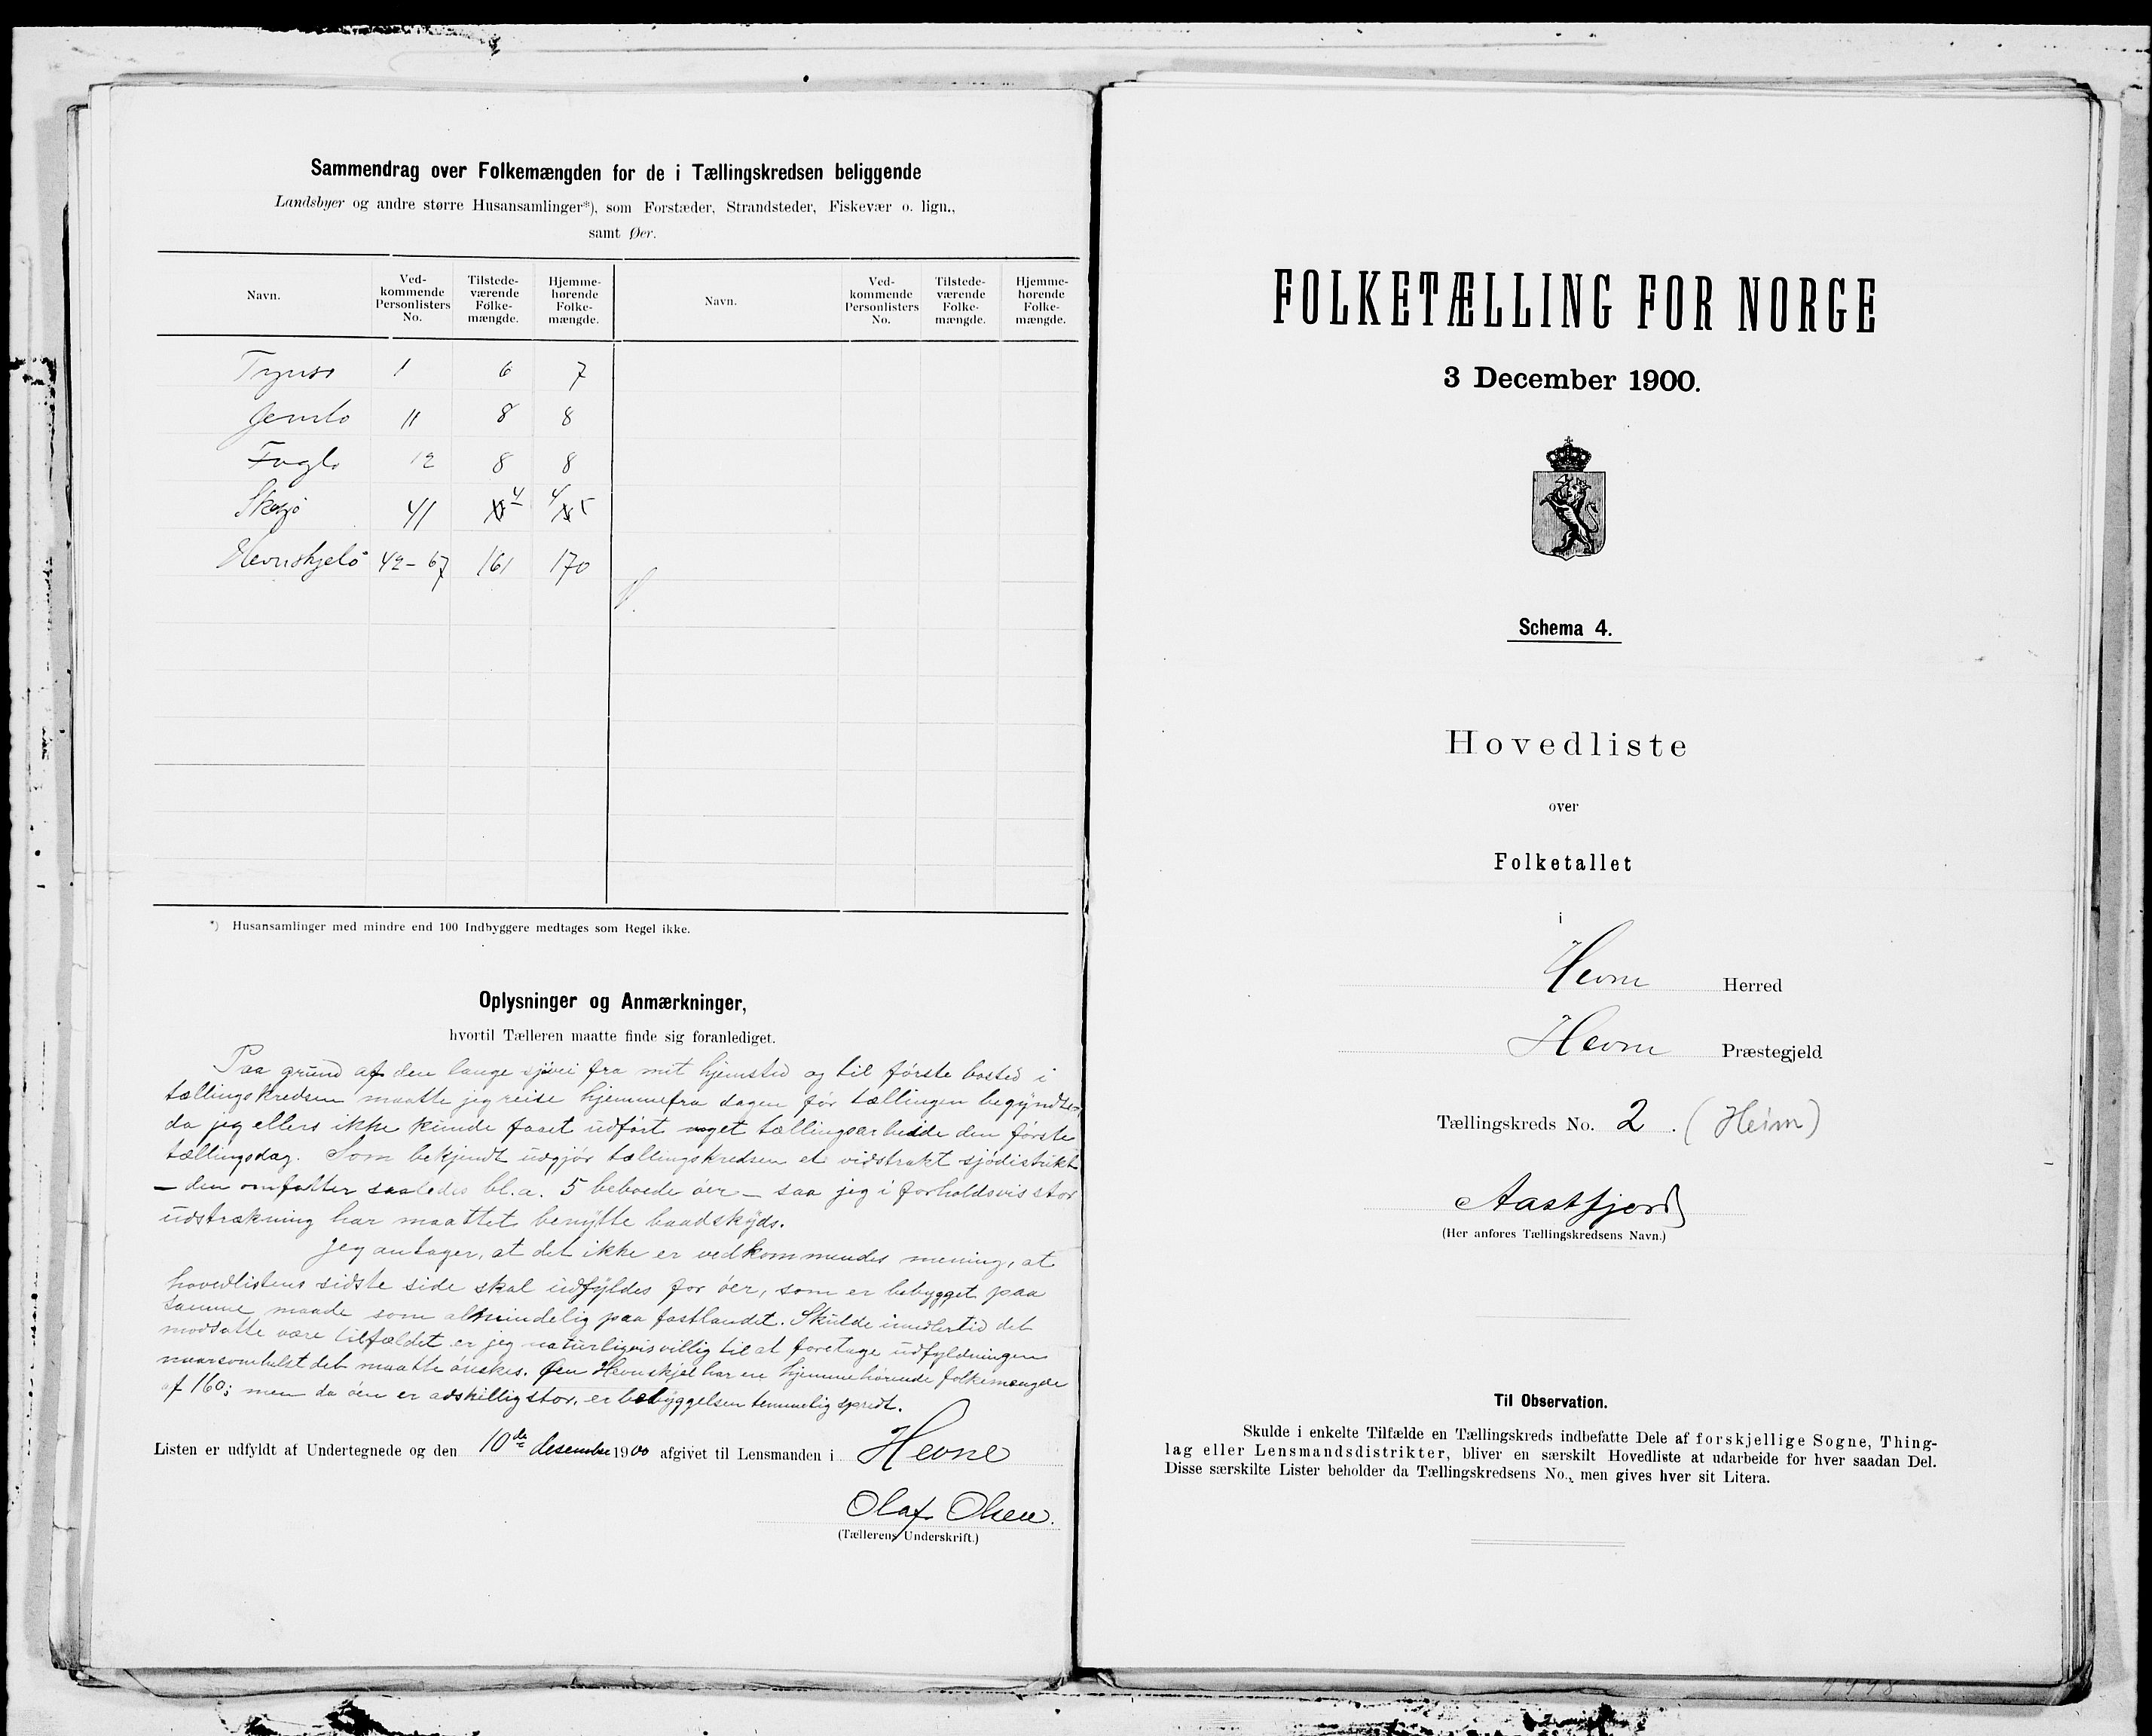 Sammendrag over Folkemængden for de i Tællingskredsen beliggende
Landsbyer og andre større Husansamlinger*), som Forstæder, Strandsteder, Fiskevær o. lign.,
samt Øer.
Navn. Ved-kommende Personlisters No. Tilstede-værende Folke-mængde. Hjemme-hørende Folke-mængde. Navn. Ved-kommende Personlisters No. Tilstede-værende Folke-mængde. Hjemme-hørende Folke-mængde.
1 6 7
11 8 8
12 8 8
41 4 5
Hevnskjelö 42-67 161 170
*) Husansamlinger med mindre end 100 Indbyggere medtages som Regel ikke.
Oplysninger og Anmærkninger,
hvortil Tælleren maatte finde sig foranlediget.
Paa grund af den lange sjövei fra mit hjemsted og til förste bosted i
tællingskredsen maatte jeg reise hjemmefra dagen för tællingen begyndte,
da jeg ellers ikke kunde faaet udfört noget tællingsarbeide den förste
tællingsdag. Som bekjendt udgjör tællingskredsen et vidstrakt sjödistrikt
– den omfatter saaledes bl.a. 5 beboede öer – saa jeg i forholdsvis stor
udstrækning har maattet benytte baadskyds.
Jeg antager, at det ikke er vedkommendes mening, at
hovedlistens sidste side skal udfyldes for öer, som er bebygget paa
samme maade som almindelig paa fastlandet. Skulde imidlertid det
modsatte være tilfældet er jeg naturligvis villig til at foretage udfyldningen
naarsomhelst det maatte önskes. Öen Hevnskjel har en hjemmehörende folkemængde
af 160; men da öen er adskillig stor, er bebyggelsen temmelig spredt.
Listen er udfyldt af Undertegnede og den 10de desember 1900 afgivet til Lensmanden i Hevne
Olaf Olsen.
(Tællerens Underskrift.)
FOLKETÆLLING FOR NORGE
3 December 1900.
Schema 4.
Hovedliste
over
Folketallet
i
Hevne Herred
Hevne Præstegjeld
Tællingskreds No. 2. (Heim)
Aastfjord
(Her anføres Tællingskredsens Navn.)
Til Observation.
Skulde i enkelte Tilfælde en Tællingskreds indbefatte Dele af forskjellige Sogne, Thing-
lag eller Lensmandsdistrikter, bliver en særskilt Hovedliste at udarbeide for hver saadan Del.
Disse særskilte Lister beholder da Tællingskredsens No., men gives hver sit Litera.